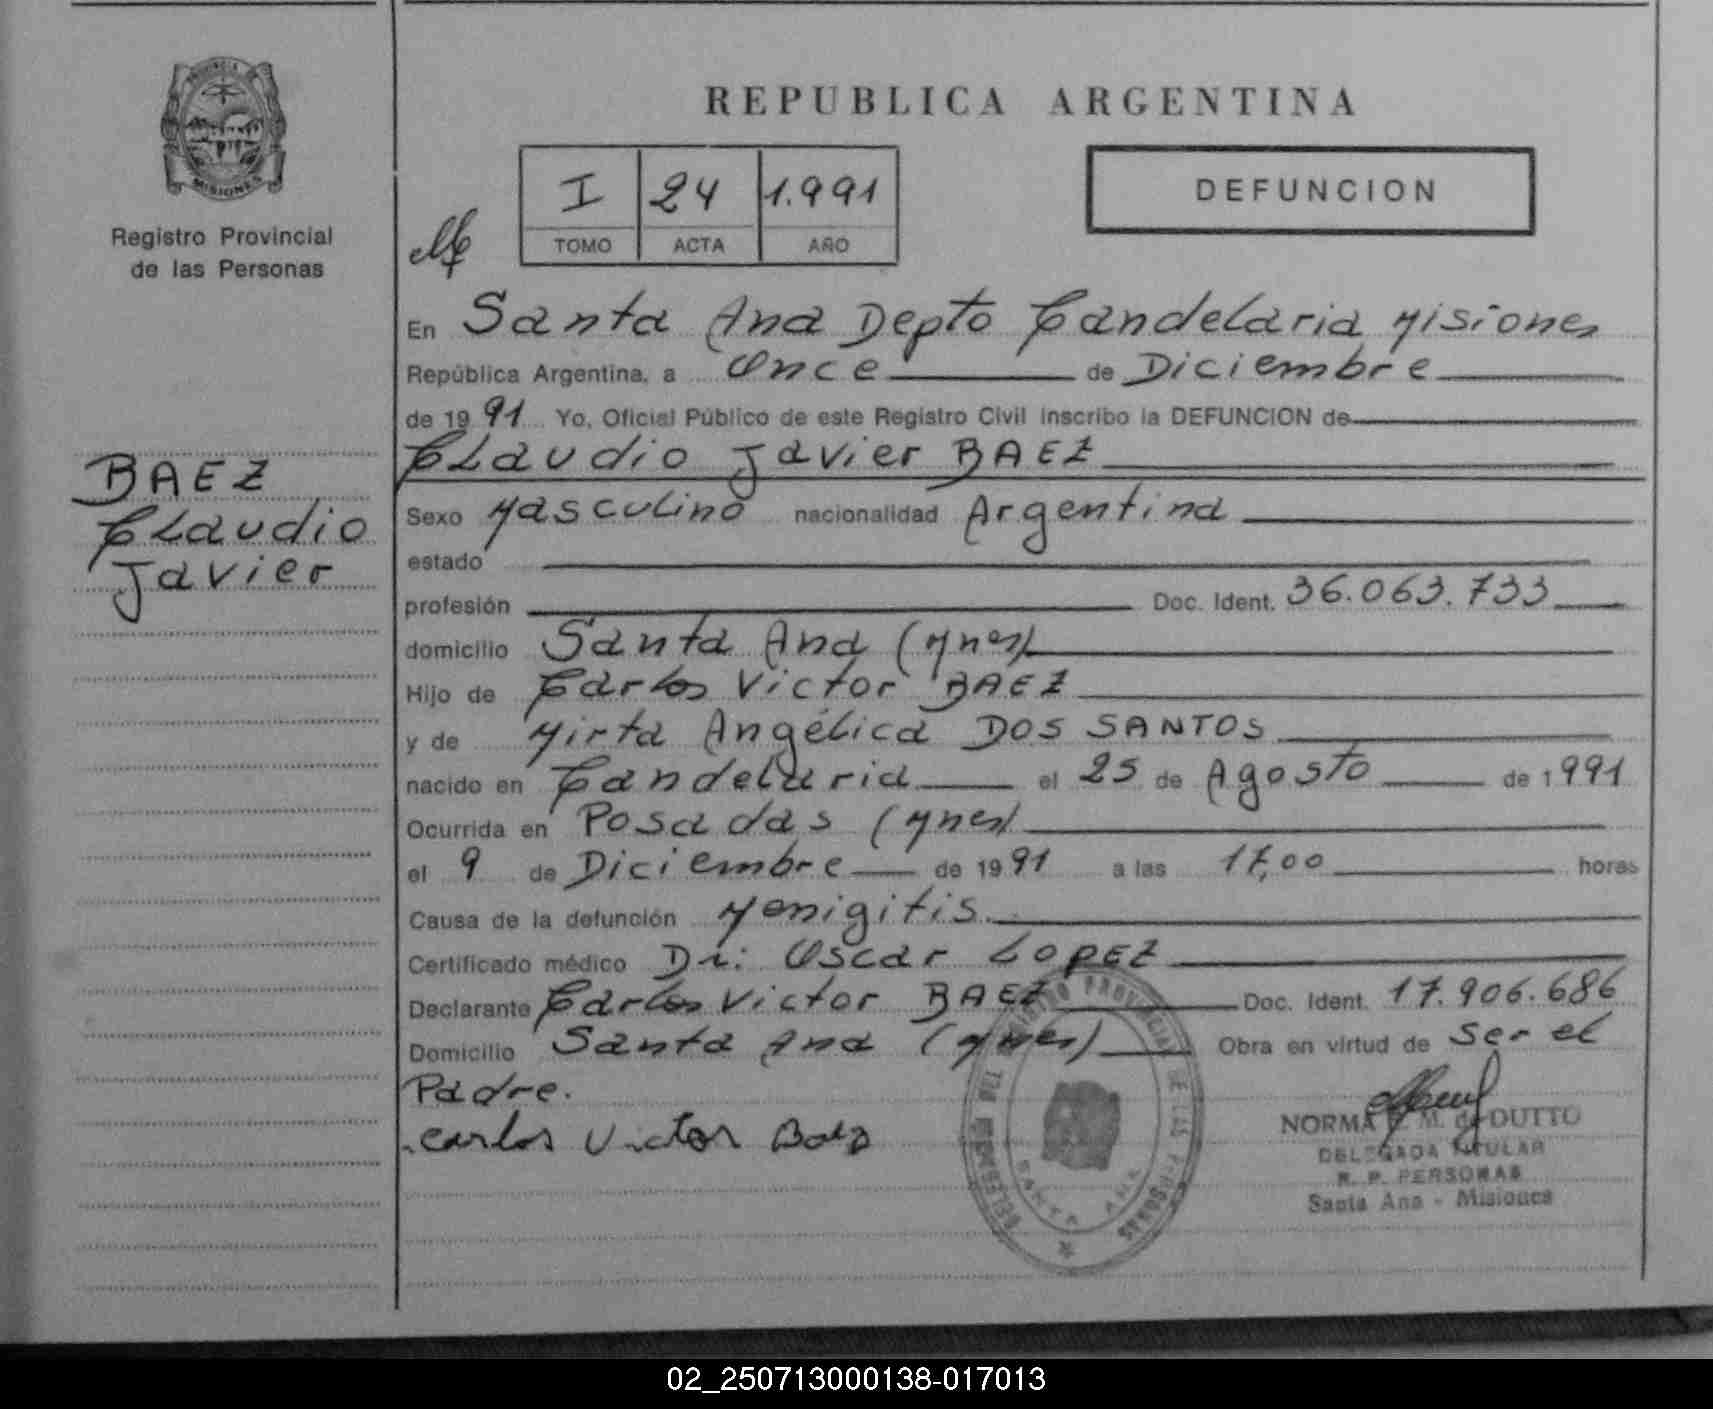 PROVINCIA DE
MISIONES
Registro Provincial
de las Personas
BAEZ
Claudio
Javier
REPUBLICA ARGENTINA
I 24 1.991
TOMO ACTA AÑO
DEFUNCION
En Santa Ana Depto Candelaria Misiones
República Argentina, a Once de Diciembre
de 1991 Yo, Oficial Público de este Registro Civil inscribo la DEFUNCION de
Claudio Javier BAEZ
Sexo Masculino nacionalidad Argentina
estado
profesión Doc. Ident. 36.063.733
domicilio Santa Ana (Mnes)
Hijo de Carlos Victor BAEZ
y de Mirta Angélica DOS SANTOS
nacido en Candelaria el 25 de Agosto de 1991
Ocurrida en Posadas (Mnes)
el 9 de Diciembre de 1991 a las 17,00 horas
Causa de la defunción Menigitis
Certificado médico Dr: Oscar LOPEZ
Declarante Carlos Victor BAEZ Doc. Ident. 17.906.686
Domicilio Santa Ana (Mnes) Obra en virtud de Ser el
Padre.
Carlos Victor Baez
REGISTRO PROVINCIAL DE LAS PERSONAS
SANTA ANA
NORMA M. de DUTTO
DELEGADA TITULAR
R. P. PERSONAS
Santa Ana - Misiones
02_250713000138-017013